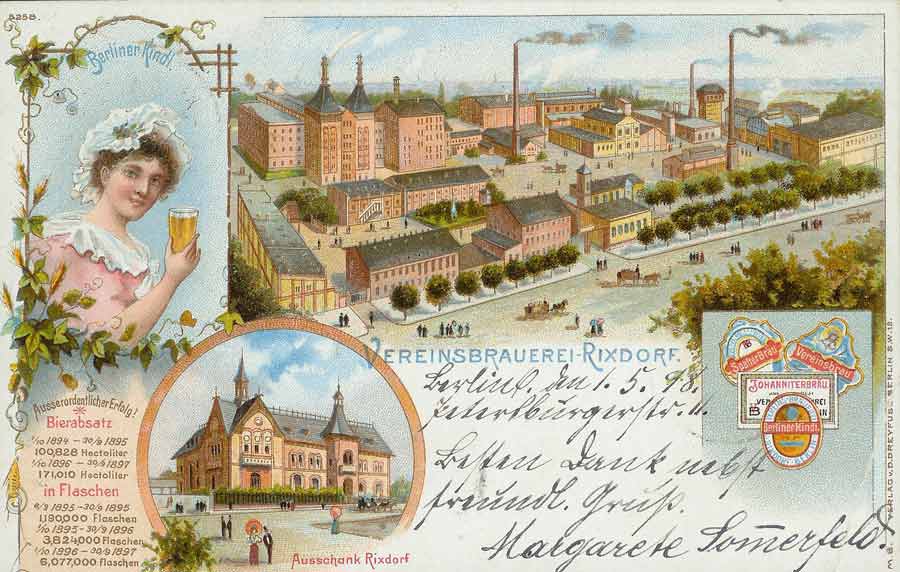 5258.
Berliner Kindl.
VEREINSBRAUEREI-RIXDORF.
Spalterbräu
Vereinsbräu
JOHANNITERBRÄU
Berliner Kindl.
Berlin S. den 1. 5. 98.
Petersburgerstr. 11.
Besten Dank nebst
freundl. Gruß.
Margarete Sommerfeld.
Ausserordentlicher Erfolg!
Bierabsatz
1/10 1894 – 30/9 1895
100,828 Hectoliter
1/10 1896 – 30/9 1897
171,010 Hectoliter
in Flaschen
6/9 1895 - 30/9 1895
1,190,000 Flaschen
1/10 1895 - 30/9 1896
3,824,000 Flaschen
1/10 1896 - 30/9 1897
6,077,000 Flaschen
Ausschank Rixdorf
M.B. VERLAG v. D. DREYFUS – BERLIN S.W. 12.